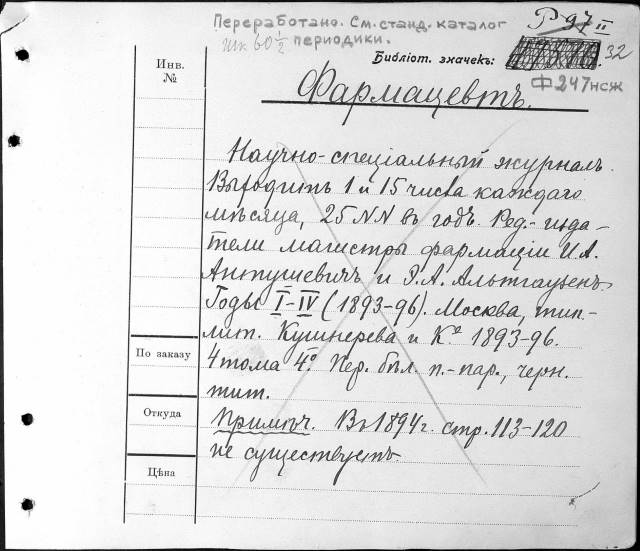 Переработано. См. станд. каталог
шк 60 1/2 периодики.
Р 97 II
Библіот. значекъ:
32
Ф 247 нсж
Инв.
№
Фармацевтъ.
Научно-спеціальный журналъ.
Выходитъ 1 и 15 числа каждаго
мѣсяца, 25 NN въ годъ. Ред.-изда-
тели магистры фармаціи И. А.
Антушевичъ и Э. А. Альтгаузенъ.
Годы I–IV (1893-96). Москва, тип-
лит. Кушнерева и К° 1893-96.
4 тома 4°. Пер. бѣл. п.-пар., черн.
тит.
Примѣч. Въ 1894 г. стр. 113-120
не существуетъ.
По заказу
Откуда
Цѣна